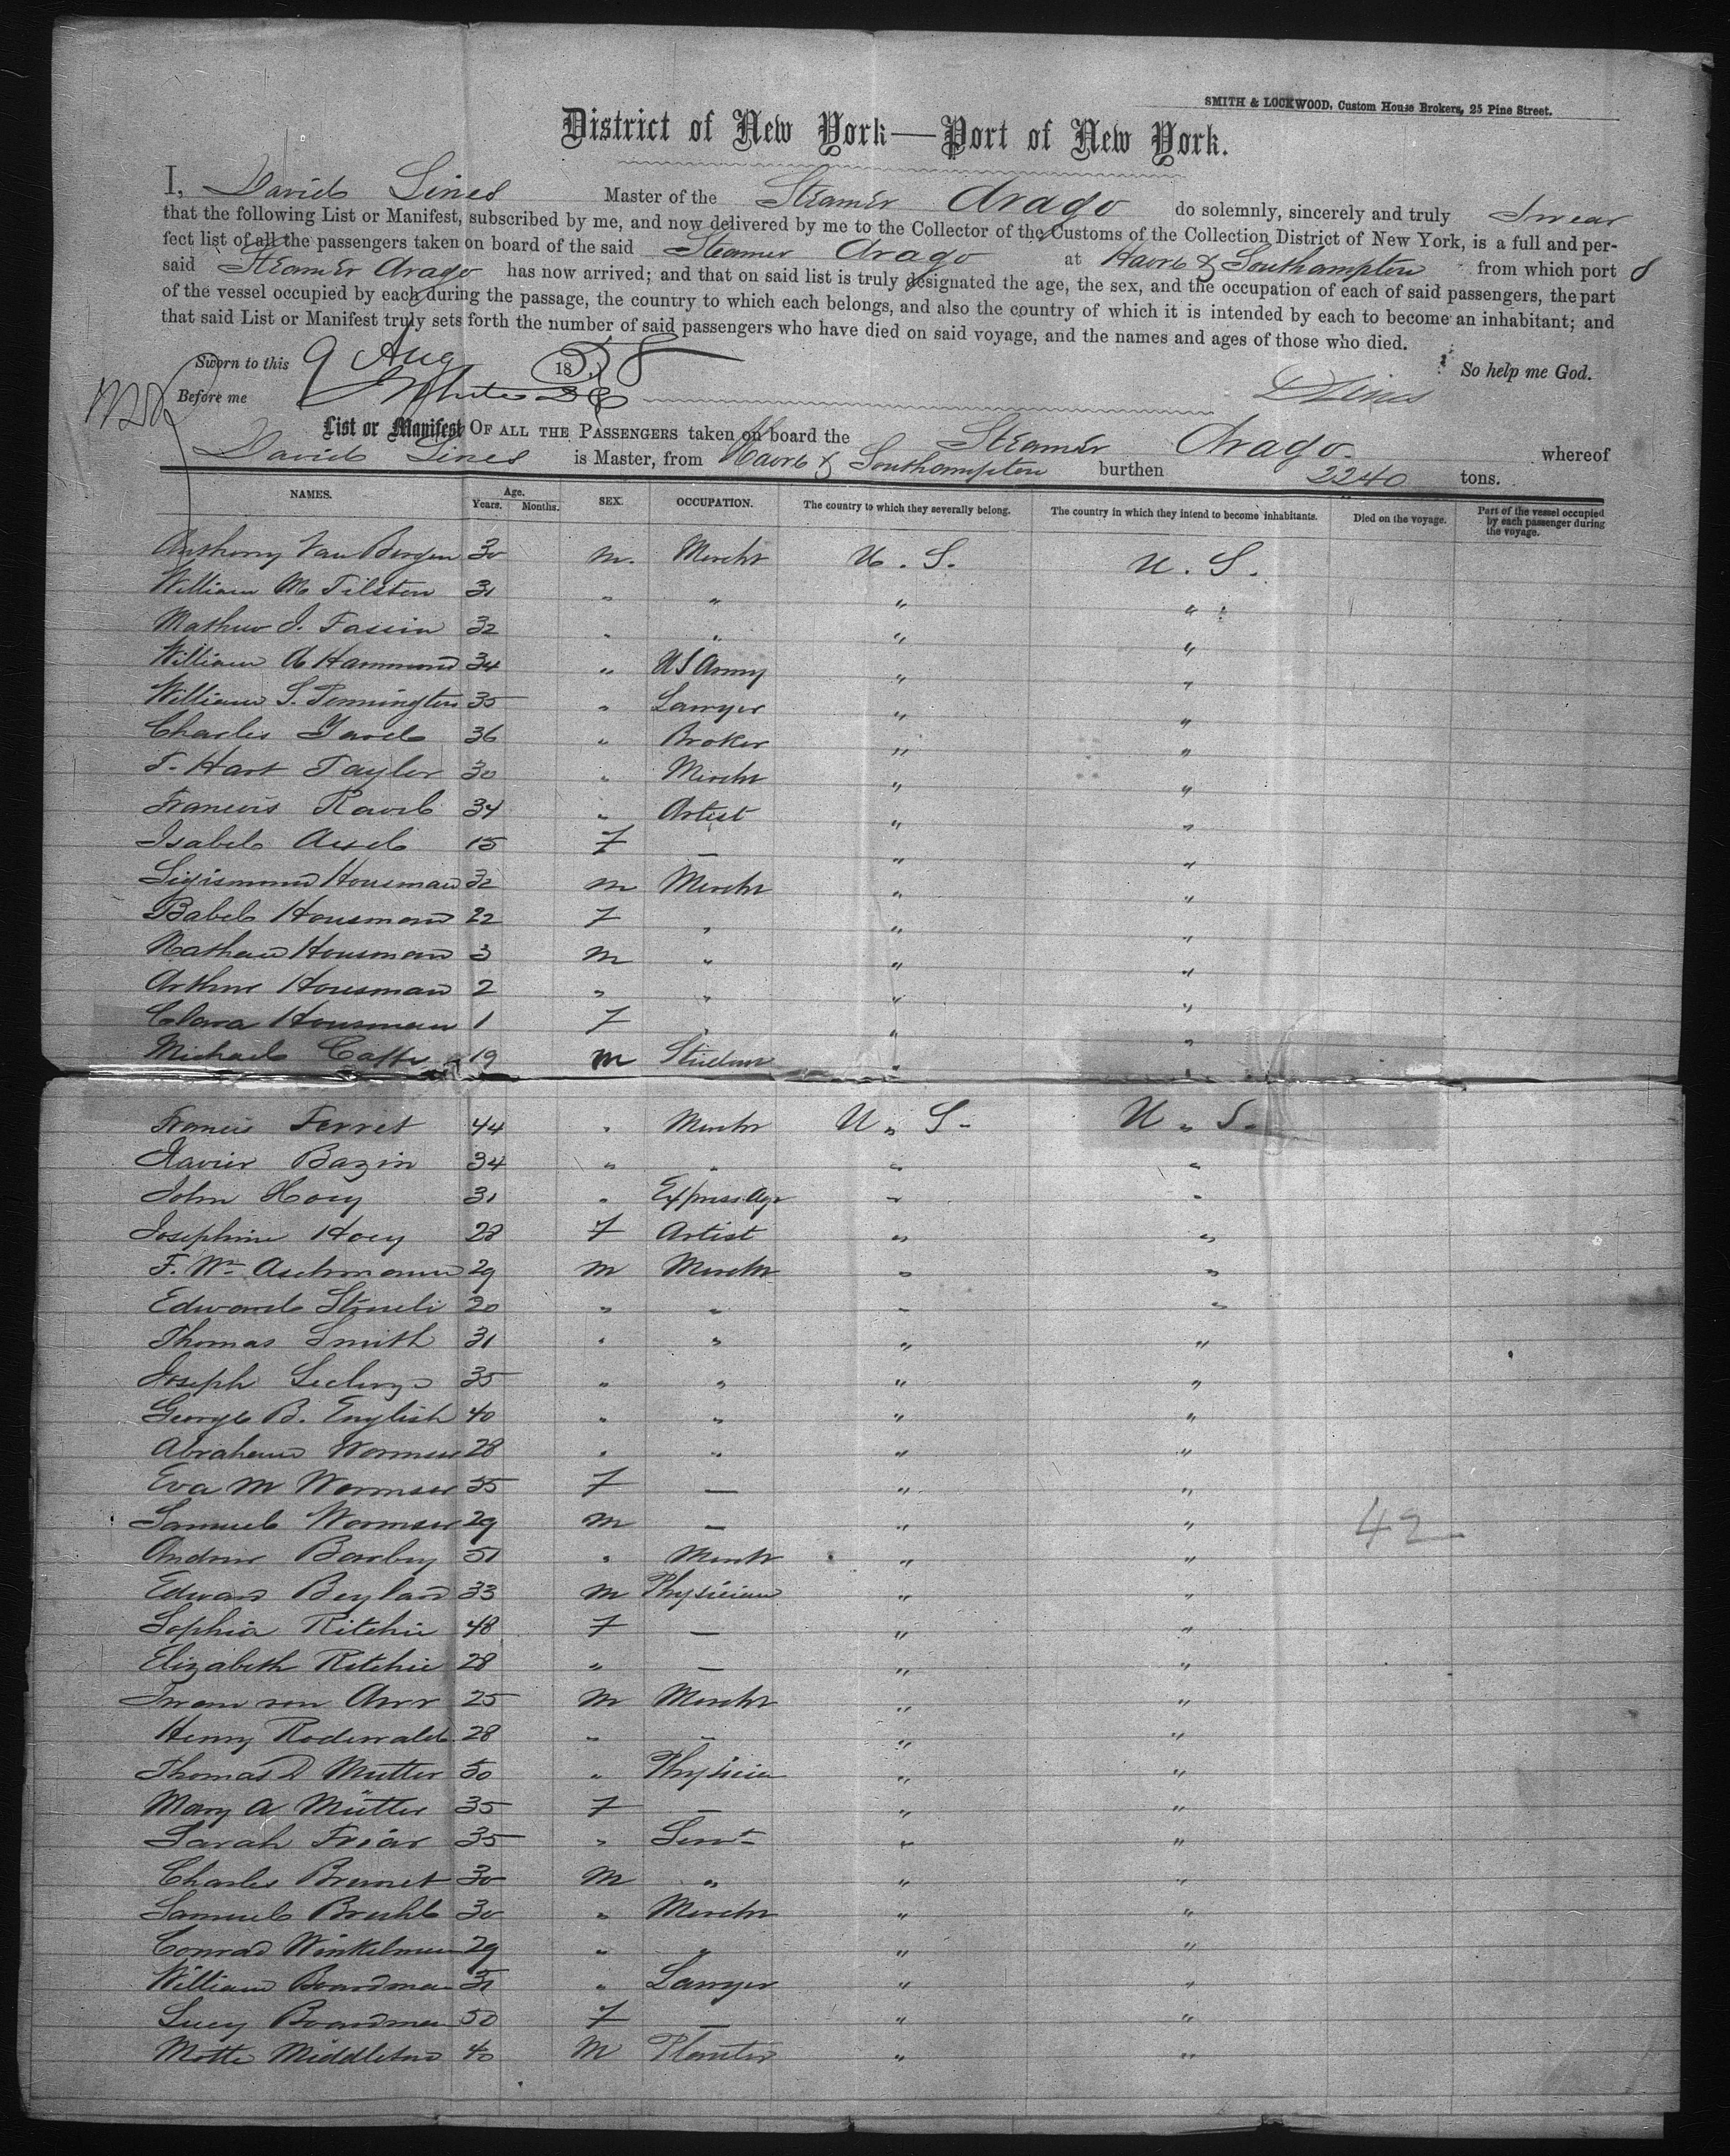 SMITH & LOCKWOOD, Custom House Brokers, 25 Pine Street.
District of New York—Port of New York.
I, David Lines Master of the Steamer Arago do solemnly, sincerely and truly Swear
that the following List or Manifest, subscribed by me, and now delivered by me to the Collector of the Customs of the Collection District of New York, is a full and per-
fect list of all the passengers taken on board of the said Steamer Arago at Havre & Southampton from which port
said Steamer Arago has now arrived; and that on said list is truly designated the age, the sex, and the occupation of each of said passengers, the part
of the vessel occupied by each during the passage, the country to which each belongs, and also the country of which it is intended by each to become an inhabitant; and
that said List or Manifest truly sets forth the number of said passengers who have died on said voyage, and the names and ages of those who died.
Sworn to this 9 Aug 1858 So help me God.
Before me J White D C D Lines
List or Manifest OF ALL THE PASSENGERS taken on board the Steamer Arago whereof
David Lines is Master, from Havre & Southampton burthen 2240 tons.
NAMES. Age. Years. Months. SEX. OCCUPATION. The country to which they severally belong. The country in which they intend to become inhabitants. Died on the voyage. Part of the vessel occupied by each passenger during the voyage.
Anthony Van Bergen 30 m. Mercht U. S. U. S.
William M Tilston 31 " " " "
Mathew J. 32 " " " "
William A Hammond 34 " US Army " "
William S. Pennington 35 " Lawyer " "
Charles 36 " Broker " "
T. Hart Taylor 30 " Mercht " "
Francois 34 " Artist " "
Isabel 15 F — " "
Sigismond Housman 32 m Mercht " "
Babel Housman 22 F " " "
Nathan Housman 3 m " " "
Arthur Housman 2 " " " "
Clara Housman 1 F " " "
Michael 19 m Student " "
Francis Ferret 44 " Mercht U. S. U. S.
Xavier Bazin 34 " " " "
John Hoey 31 " Express Agt " "
Josephine Hoey 28 F Artist " "
F. Wm Aschmann 29 m Mercht " "
Edward 20 " " " "
Thomas Smith 31 " " " "
Joseph 35 " " " "
George B. English 40 " " " "
Abraham Wormser 28 " " " "
Eva M Wormser 55 F — " "
Samuel Wormser 29 m — " " 42
Andrew Barbey 51 " Mercht " "
Edward Beylard 33 m Physician " "
Sophia Ritchie 48 F — " "
Elizabeth Ritchie 28 " — " "
von 25 m Mercht " "
Henry Rodewald 28 " " " "
Thomas D Mütter 50 " Physician " "
Mary A Mütter 35 F — " "
Sarah Friar 35 " Servt " "
Charles Brunet 30 m " " "
Samuel Bruhl 30 " Mercht " "
Conrad Winkelman 29 " " " "
William Boardman " Lawyer " "
Lucy Boardman 50 F — " "
Motte Middleton 40 M Planter " "